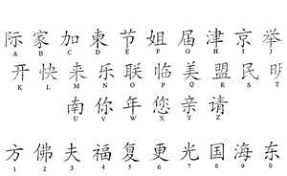 际 家 加 東 节 姐 届 津 京 举
A B C D E F G H I J
开 快 来 乐 联 临 美 盟 民 明
K L M N O P Q R S T
南 你 年 您 亲 请
U V W X Y Z
方 佛 夫 福 复 更 光 国 海 东
1 2 3 4 5 6 7 8 9 0